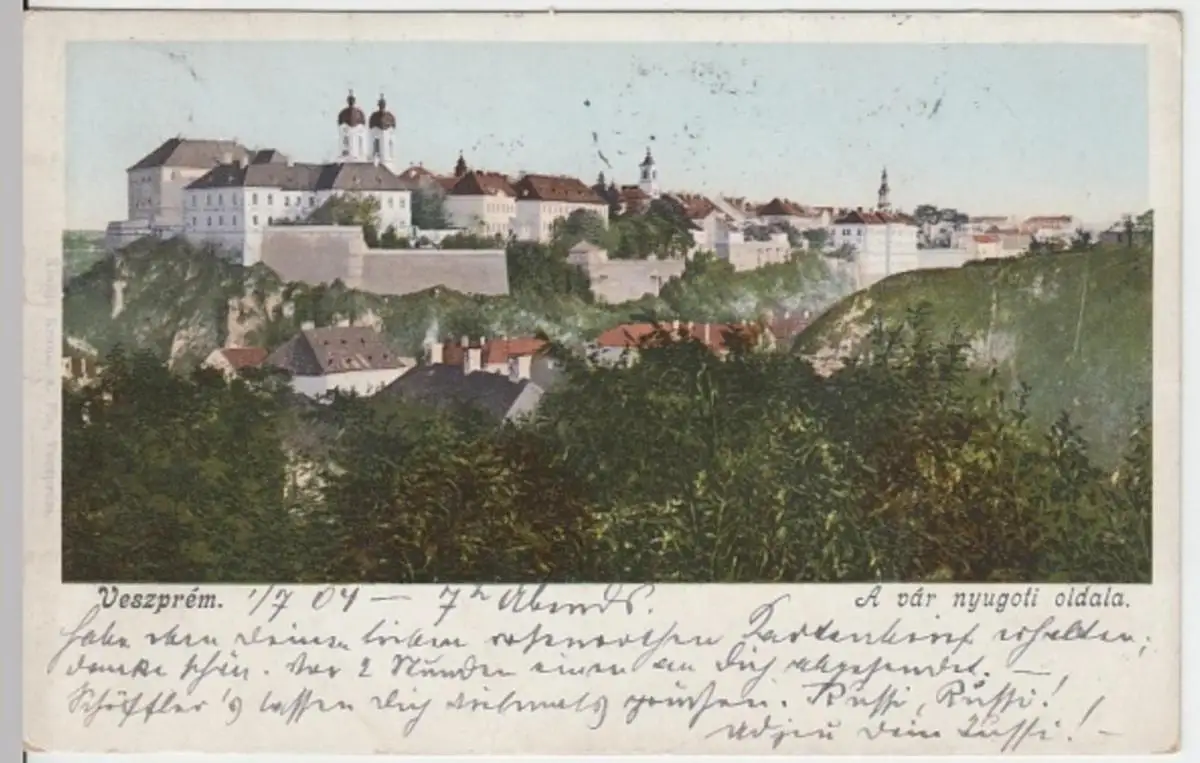 Veszprém. 1/7 04 — 7h Abends. A vár nyugoti oldala.
habe eben deinen lieben rosenrothen Kartenbrief erhalten;
danke schön. Vor 2 Stunden einen an Dich abgesendet. —
Schöffler's lassen Dich vielmals grüssen. Kussi, Kussi!
Adjeu Dein